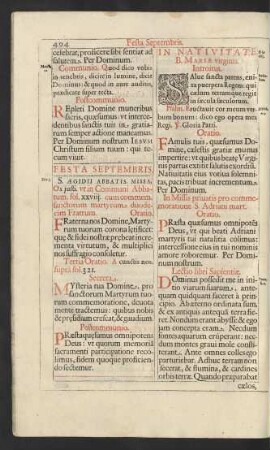 494
Festa Septembris.
celebrat, proficere sibi sentiat ad
salutem. Per Dominum.
Communio. Quod dico vobis
in tenebris, dicite in lumine, dicit
Dominus: & quod in aure auditis,
prædicate super tecta.
Postcommunio.
Repleti Domine muneribus
sacris, quæsumus: vt interce-
dentibus sanctis tuis in gra-
tiarum semper actione maneamus.
Per Dominum nostrum IESVM
Christum filium tuum: qui te-
cum viuit
FESTA SEPTEMBRIS.
S. AEGIDII ABBATIS MISSA.
Os justi. vt in Communi Abba-
num. fol. xxviij. cum commem.
sanctorum martyrum duode-
cim Fratrum. Oratio.
Fraternos Domine, Marty-
rum corona lętificet:
quæ & fidei nostræ præbeat incre-
menta virtutum, & multiplici
nos suffragio consoletur.
Tertia Oratio. A cunctis nos
supra fol. 521.
Secreta.
Mysteria tua Domine, pro
sanctorum Martyrum tuo-
rum commemoratione, deuota
mente tractemus: quibus nobis
& præsidium crescat, & gaudium
Postcommunio.
Præsta quæsumus omnipotens
Deus: vt quorum memoria
sacramenti participatione reco-
limus, fidem quoque proficien-
do sectemur.
IN NATIVITATE
B. MARIÆ virginis.
Introitus.
Salue sancta parens, eni-
xa puerpera Regem: qui
cælum terramque regit
in sæcula sæculorum.
Psalm. Eructauit cor meum ver-
bum bonum: dico ego opera mea
Regi. ℣. Gloria Patri.
Oratio.
Famulis tuis, quæsumus Do-
mine, cælestis gratiæ munus
impertire: vt quibus beatę Virgi-
nis partus extitit salutis exordiũ,
Natiuitatis eius votiua solenni-
tas, pacis tribuat incrementum.
Per Dominum.
In Missis priuatis pro comme-
moratione S. Adriani mart.
Oratio.
Præsta quæsumus omnipotẽs
Deus: vt qui beati Adriani
martyris tui natalitia colimus:
intercessione eius in tui nominis
amore roboremur. Per Domi-
num nostrum.
Lectio libri Sapientiæ.
Dominus possedit me in ini-
tio viarum suarum, ante-
quam quidquam faceret à prin-
cipio. Ab æterno ordinata sum,
& ex antiquis antequam terra
fieret. Nondum erant abyssi, & ego
iam concepta eram. Necdum
fontes aquarum eruperant: nec-
dum montes graui mole consti-
terant. Ante omnes colles ego
parturiebar. Adhuc terram non
fecerat, & flumina, & cardines
orbis terræ. Quando præparabat
cælos,